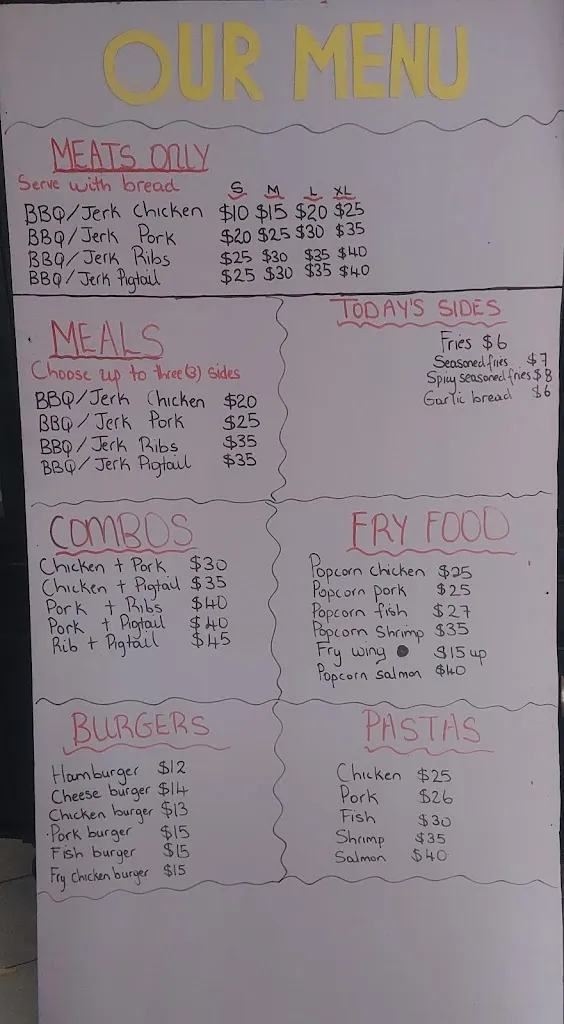 OUR MENU
MEATS ONLY
Serve with bread
S M L XL
BBQ/Jerk Chicken $10 $15 $20 $25
BBQ/Jerk Pork $20 $25 $30 $35
BBQ/Jerk Ribs $25 $30 $35 $40
BBQ/Jerk Pigtail $25 $30 $35 $40
MEALS
Choose up to three(3) sides
BBQ/Jerk Chicken $20
BBQ/Jerk Pork $25
BBQ/Jerk Ribs $35
BBQ/Jerk Pigtail $35
TODAY'S SIDES
Fries $6
Seasoned fries $7
Spicy seasoned fries $8
Garlic bread $6
COMBOS
Chicken + Pork $30
Chicken + Pigtail $35
Pork + Ribs $40
Pork + Pigtail $40
Rib + Pigtail $45
FRY FOOD
Popcorn chicken $25
Popcorn pork $25
Popcorn fish $27
Popcorn Shrimp $35
Fry wing $15 up
Popcorn salmon $40
BURGERS
Hamburger $12
Cheese burger $14
Chicken burger $13
Pork burger $15
Fish burger $15
Fry chicken burger $15
PASTAS
Chicken $25
Pork $26
Fish $30
Shrimp $35
Salmon $40